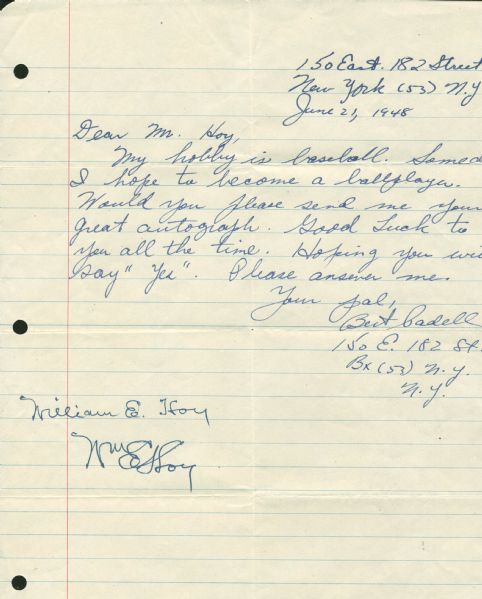 150 East. 182 Street
New York (53) N.Y
June 21, 1948
Dear Mr. Hoy,
My hobby is baseball. Somed
I hope to become a ballplayer.
Would you please send me your
great autograph. Good Luck to
you all the time. Hoping you wi
say "Yes". Please answer me.
Your pal,
Bert Cadell
150 E. 182 St.
Bx (53) N.Y.
N.Y.
William E. Hoy
Wm E Hoy